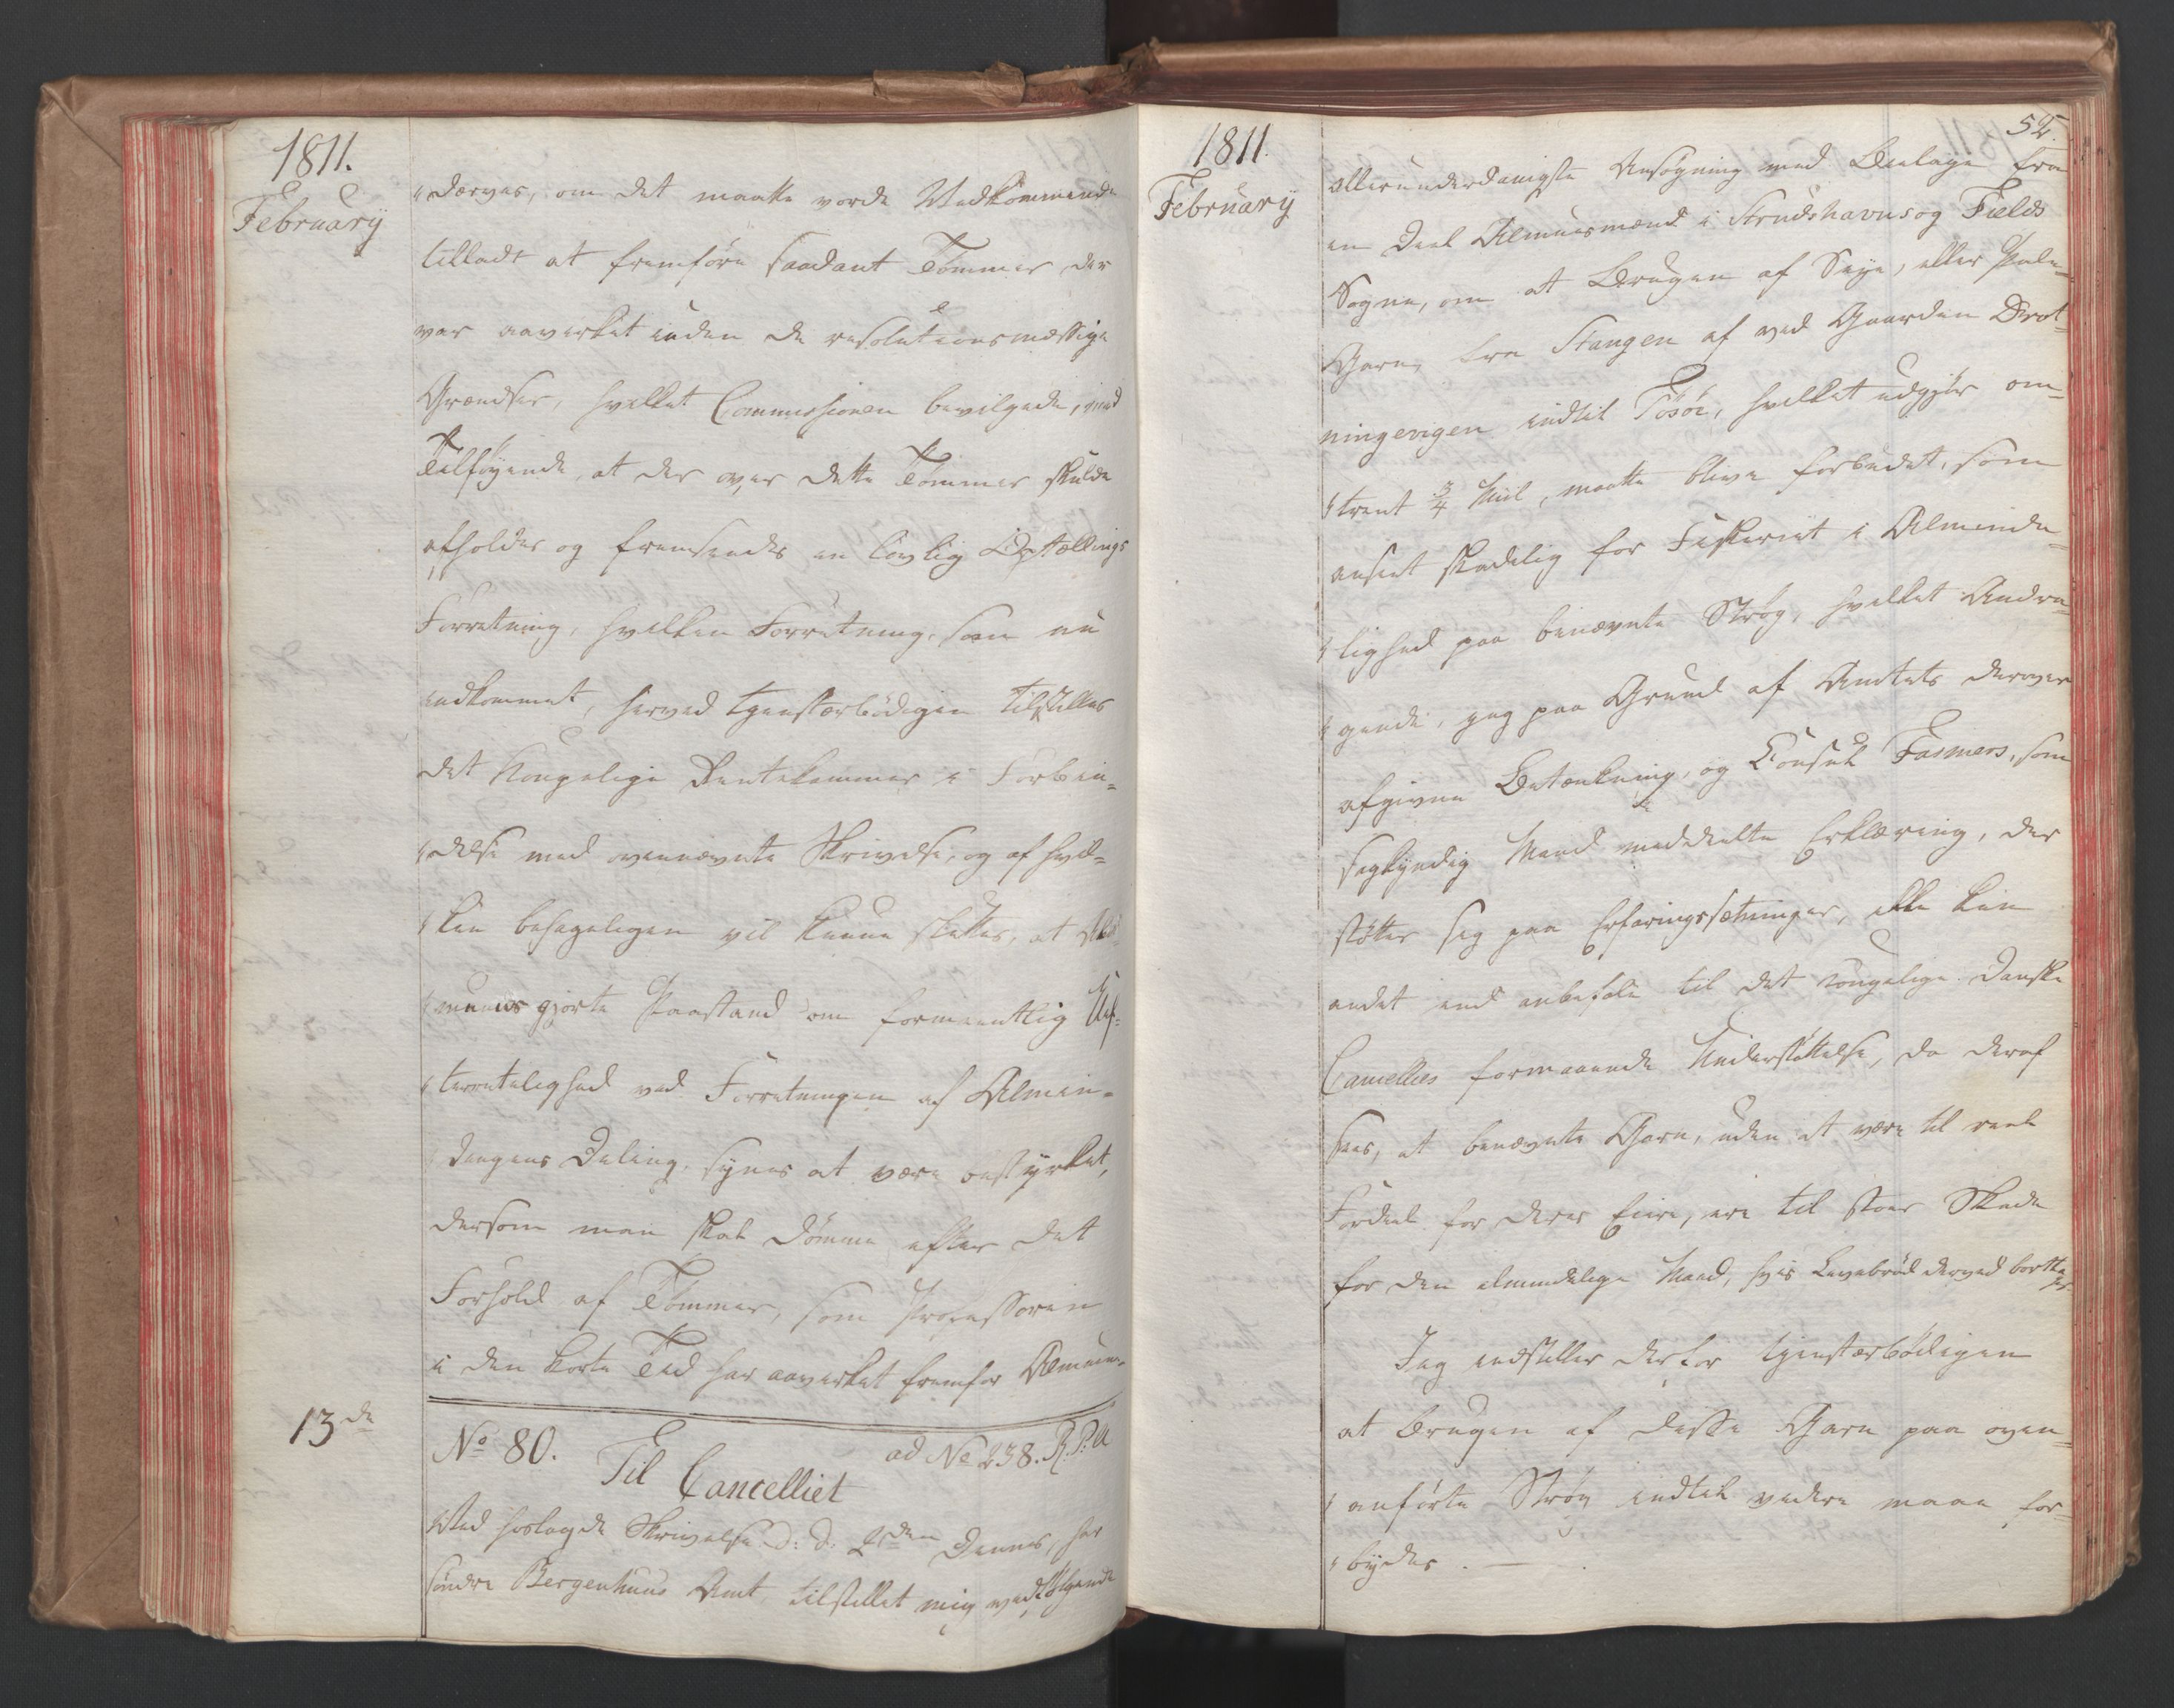 1811.
February
"derves, om det maatte vorde Vedkommende
tilladt at fremføre saadant Tømmer, der
var aavirket inden de resolutionsmæssige
Grændser, hvilket Commissionen bevilgede, med
Tilføyende, at der over dette Tømmer skulde
afholdes og fremsendes en lovlig Optællings
Forretning, hvilken Forretning, som nu
indkommet, herved tienstærbødigen tilstilles
det Kongelige Rentekammer i Forbin=
"delse med ovennævnte Skrivelse, og af hvil=
"ken behageligen vil kunne sluttes, at Al=
"muens gjorte Paastand om formeentlig Uef=
"terretlighed ved Forretningen af Almin=
"dingens Deling, synes at være bestyrket,
dersom man skal dømme efter det
Forhold af Tømmer, som Professoren
i den korte Tid har aavirket fremfor Almuen.
13de
No 80.
ad No 238. R. P. A
Til Cancelliet
Ved hoslagde Skrivelse d: d. 2den Dennes, har
søndre Bergenhuus Amt tilstillet mig vedfølgende
1811.
February
52.
allerunderdanigste Ansøgning med Bielage fra
en Deel Almuesmænd i Strudshavns og Fields
Sogne, om at Brugen af Seye, eller Pale=
Garn, fra Stangen af ved Gaarden Brat=
ningevigen indtil Tosøe, hvilket udgjør om=
"trent 3/4 Miil, maatte blive forbudet, som
anseet skadelig for Fiskeriet i Alminde=
"lighed paa benævnte Strøg, hvilket Andra=
"gende, jeg paa Grund af Amtets derover
afgivne Betænkning, og Consul Fasmers, som
sagkyndig Mand meddeelte Erklæring, der
støtter sig paa Erfaringssætninger, ikke kan
andet end anbefale til det kongelige Danske
Cancellies formaaende Understøttelse, da deraf
sees, at benævnte Garn, uden at være til reel
Fordeel for deres Eiere, ere til stoer Skade
for den almindelige Mand, hvis Levebrød derved borttages.
Jeg indstiller derfor tienstærbødigen
at Brugen af disse Garn paa oven=
"anførte Strøg indtil videre maae for=
"bydes. —